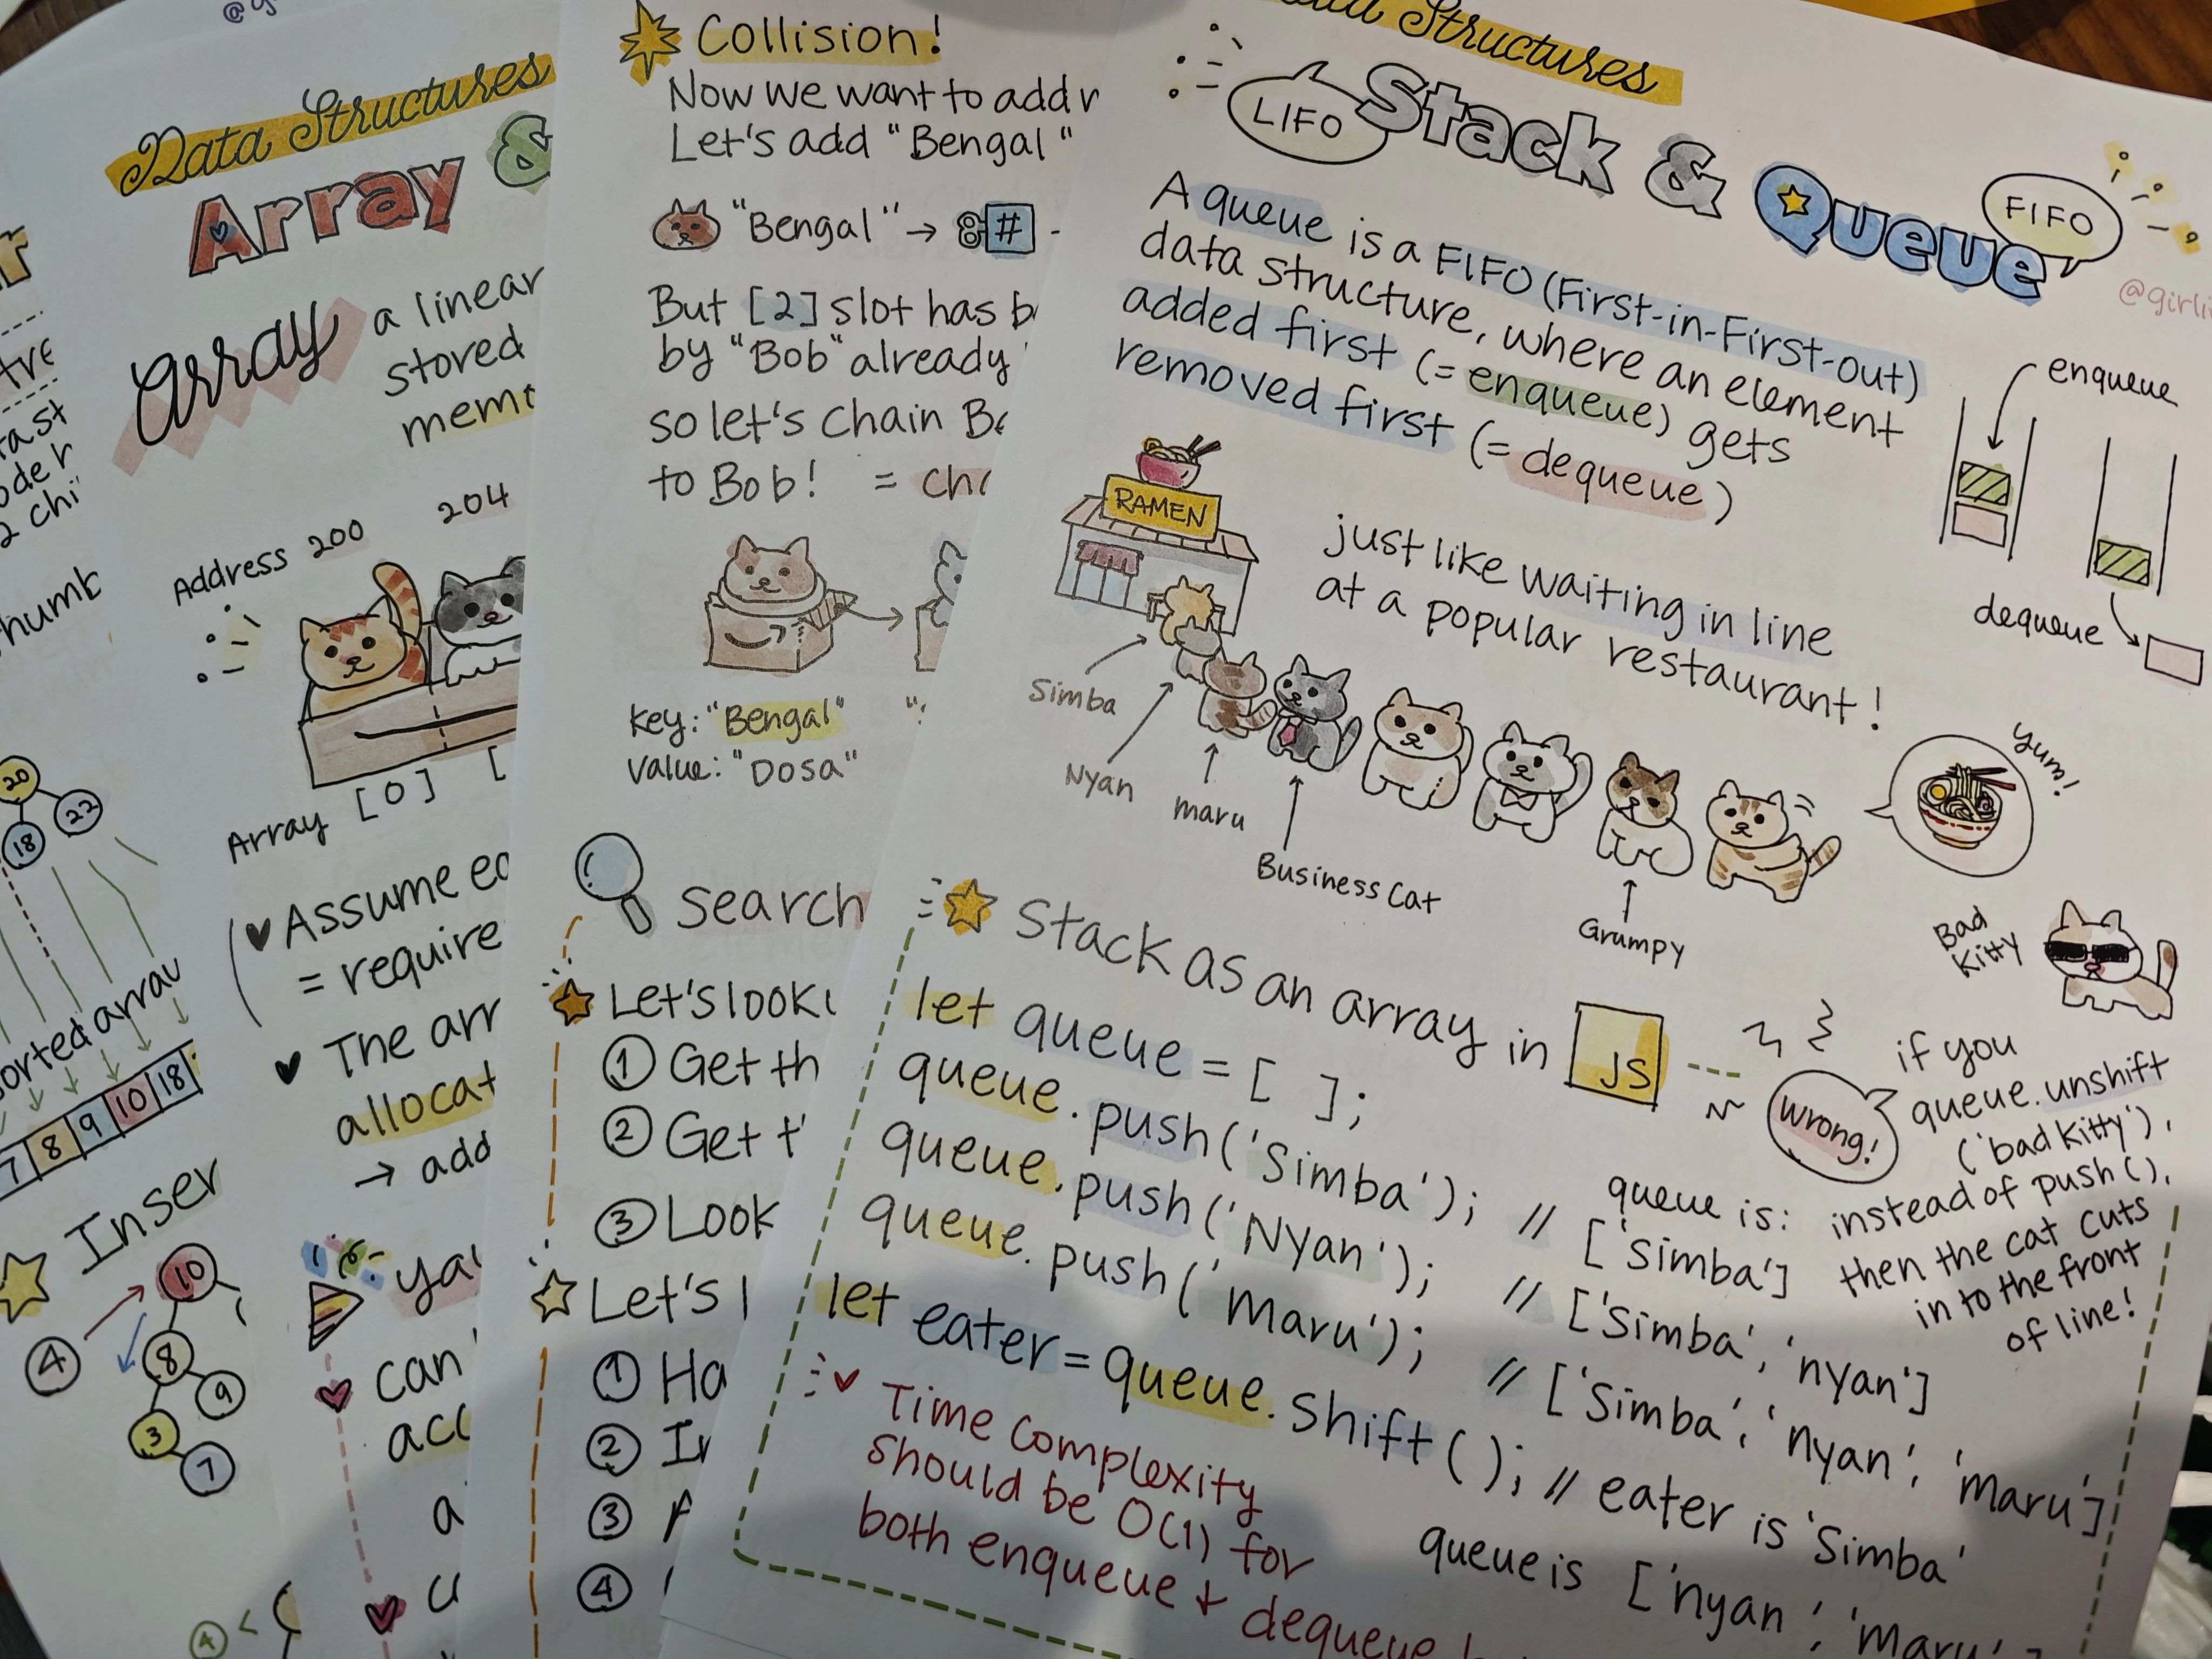 Data Structures
Array &
array
a linear
stored
Address 200
204
Array
[0]
[
Assume
= require
The arr
allocat
→ add
can
20
18
22
7 8 9 10 18
Inser
10
4
8
9
3
7
4 <
Collision!
Now we want to add
Let's add "Bengal"
"Bengal" → #
But [2] slot has
by "Bob" already
so let's chain
to Bob! =
key: "Bengal"
value: "Dosa"
search
Let's look
① Get th
② Get t
③ Look
Let's
① Ha
②
③
④
Structures
LIFO
Stack & Queue
FIFO
@girli
A queue is a FIFO (First-in-First-out)
data structure, where an element
added first (= enqueue) gets
removed first (= dequeue)
enqueue
dequeue
RAMEN
just like waiting in line
at a popular restaurant!
Simba
Nyan
maru
Business Cat
Grumpy
yum!
Bad
Kitty
Stack as an array in JS
let queue = [ ];
queue.push('Simba'); // ['Simba']
queue.push('Nyan'); // ['Simba', 'nyan']
queue.push('maru'); // ['Simba', 'nyan', 'maru']
let eater = queue.shift(); // eater is 'Simba'
queue is ['nyan', 'maru']
queue is:
wrong!
if you
queue.unshift
('bad kitty'),
instead of push(),
then the cat cuts
in to the front
of line!
Time complexity
should be O(1) for
both enqueue + dequeue